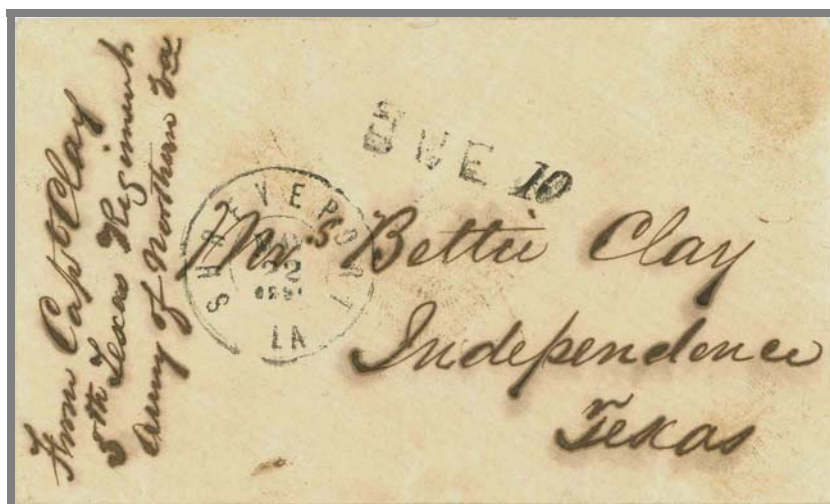 From Capt Clay
5th Texas Regiment
Army of Northern Va
DUE 10
SHREVEPORT
22
LA
Mrs Bettie Clay
Independence
Texas